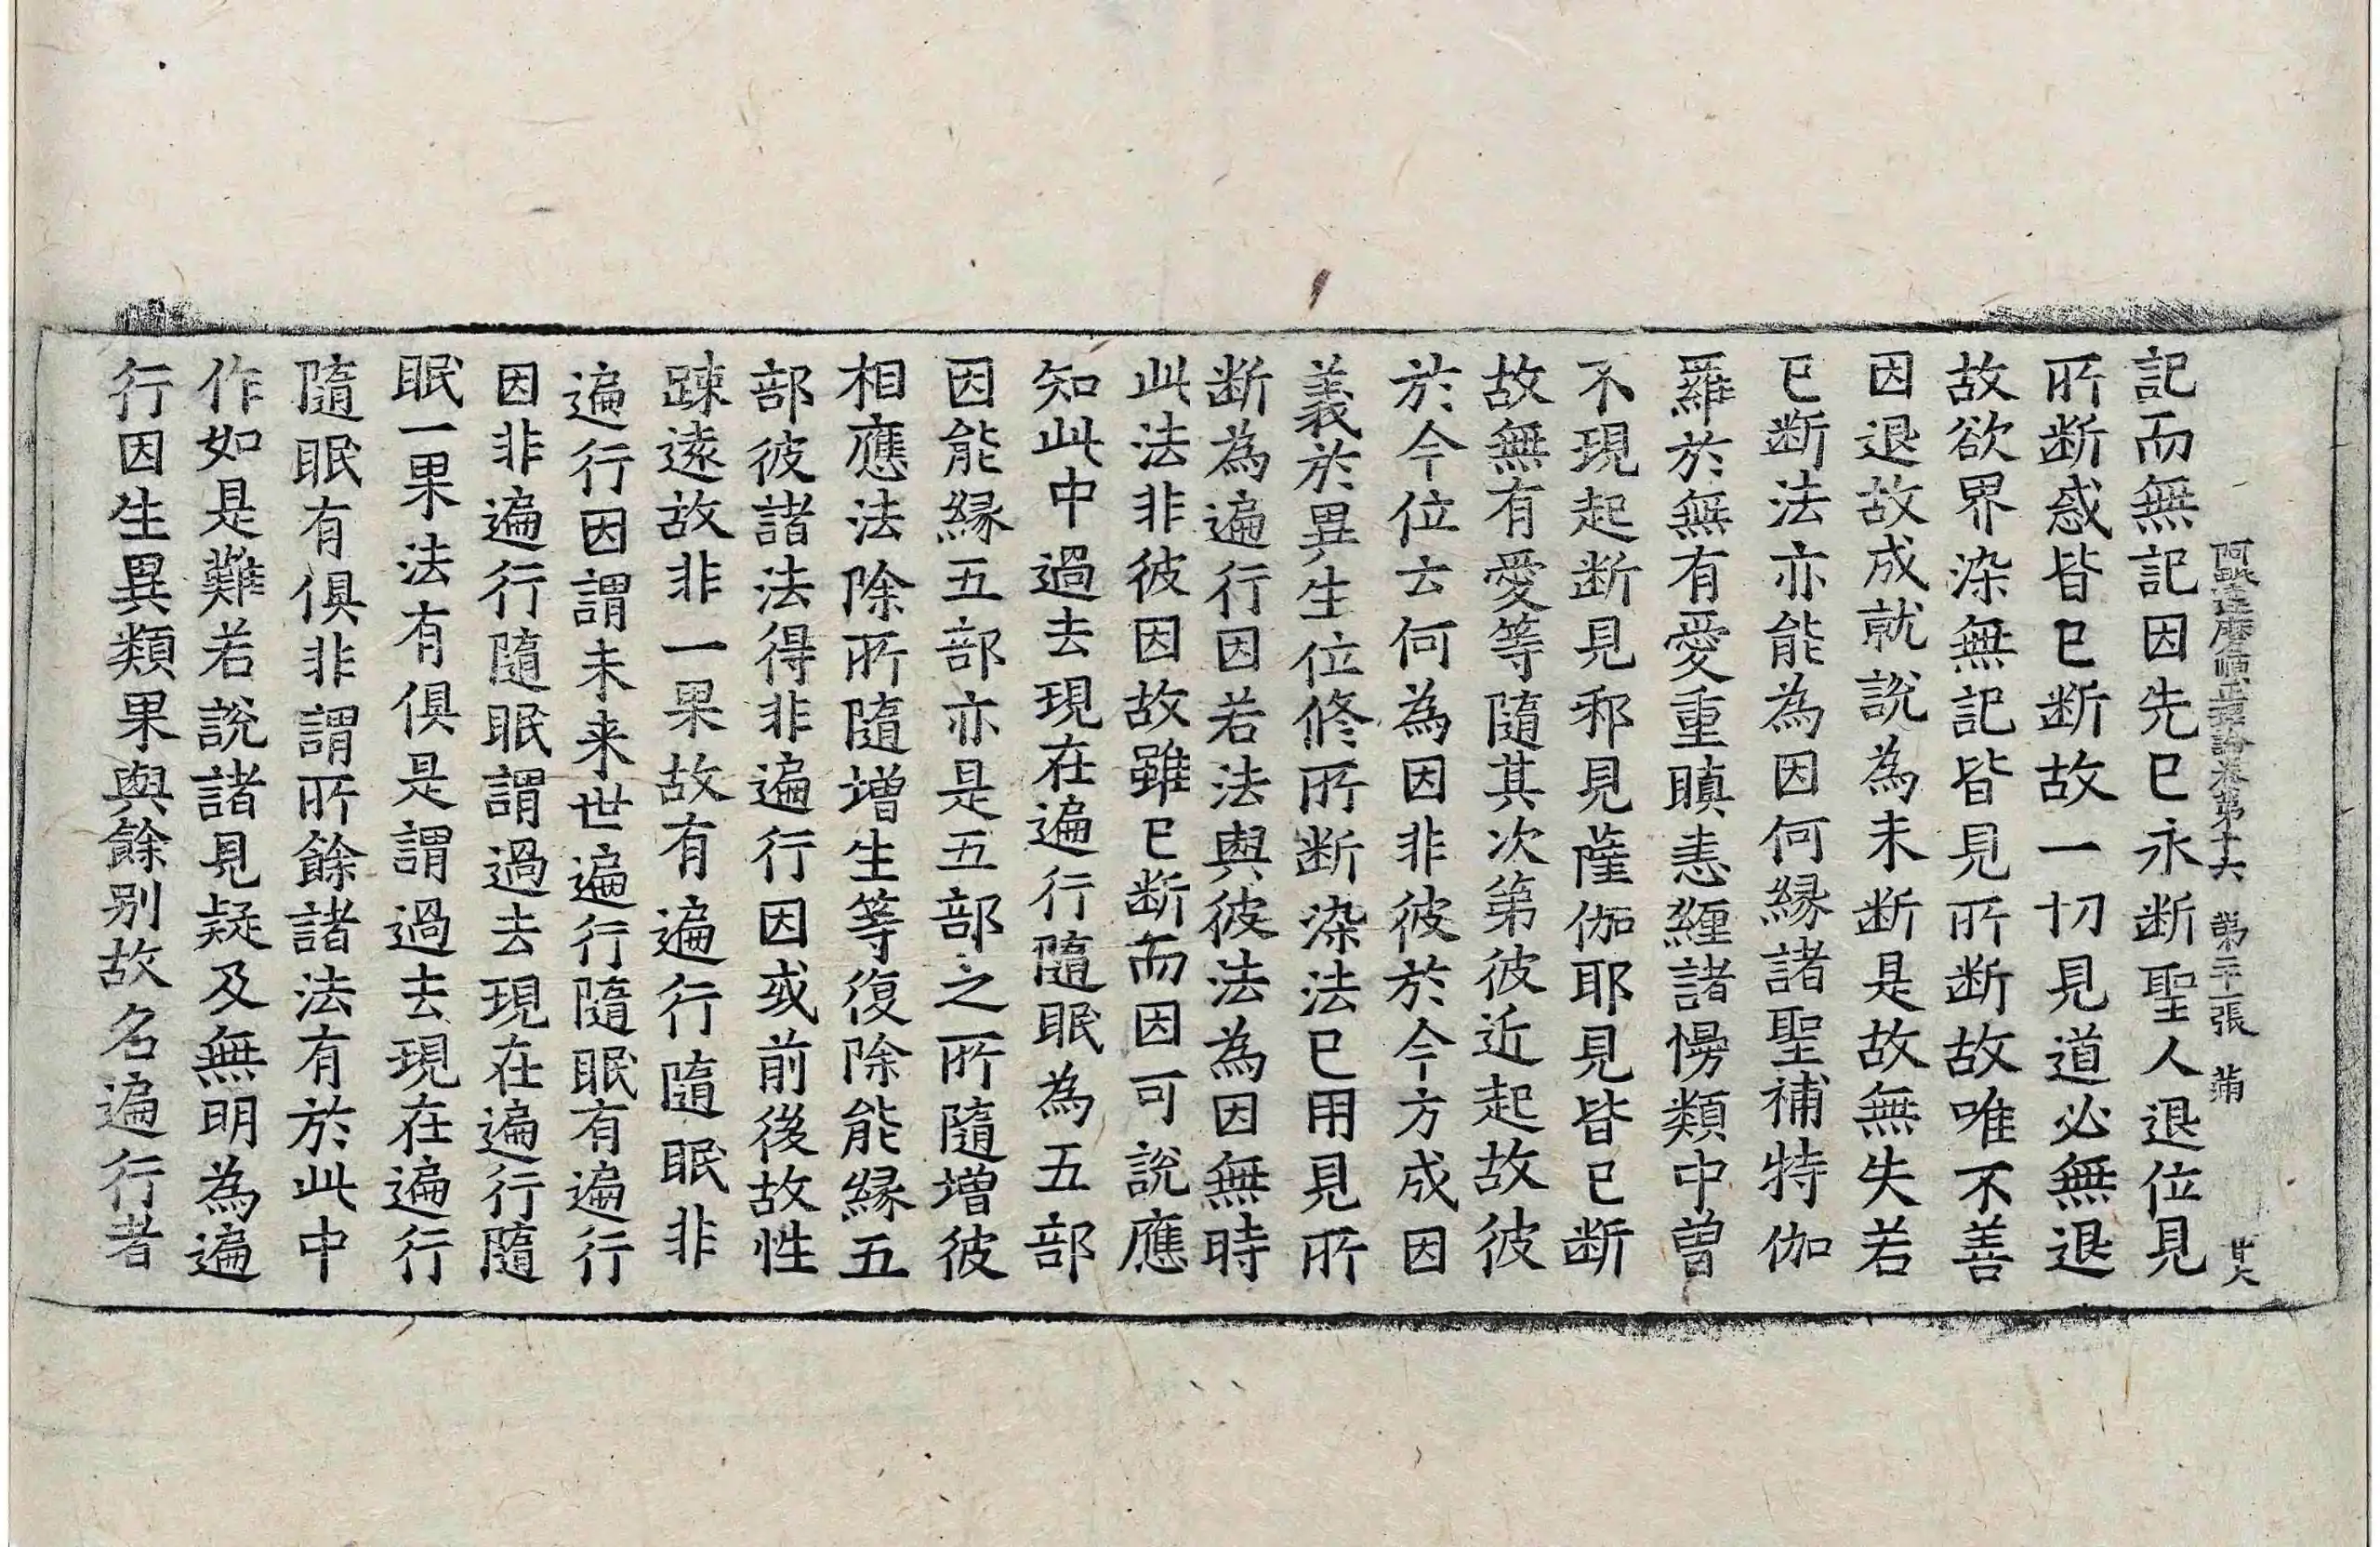 阿毗達磨順正理論卷第十六 第二十張 蒲 廿六
記而無記因先已永断聖人退位見
所断惑皆已断故一切見道必無退
故欲界染無記皆見所断故唯不善
因退故成就說為未断是故無失若
已断法亦能為因何縁諸聖補特伽
羅於無有愛重瞋恚纏諸慢類中曾
不現起断見邪見薩伽耶見皆已断
故無有愛等隨其次第彼近起故彼
於今位云何為因非彼於今方成因
義於異生位修所断染法已用見所
断為遍行因若法與彼法為因無時
此法非彼因故雖已断而因可說應
知此中過去現在遍行隨眠為五部
因能縁五部亦是五部之所隨增彼
相應法除所隨增生等復除能縁五
部彼諸法得非遍行因或前後故性
踈遠故非一果故有遍行隨眠非
遍行因謂未来世遍行隨眠有遍行
因非遍行隨眠謂過去現在遍行隨
眠一果法有俱是謂過去現在遍行
隨眠有俱非謂所餘諸法有於此中
作如是難若說諸見疑及無明為遍
行因生異類果與餘別故名遍行者